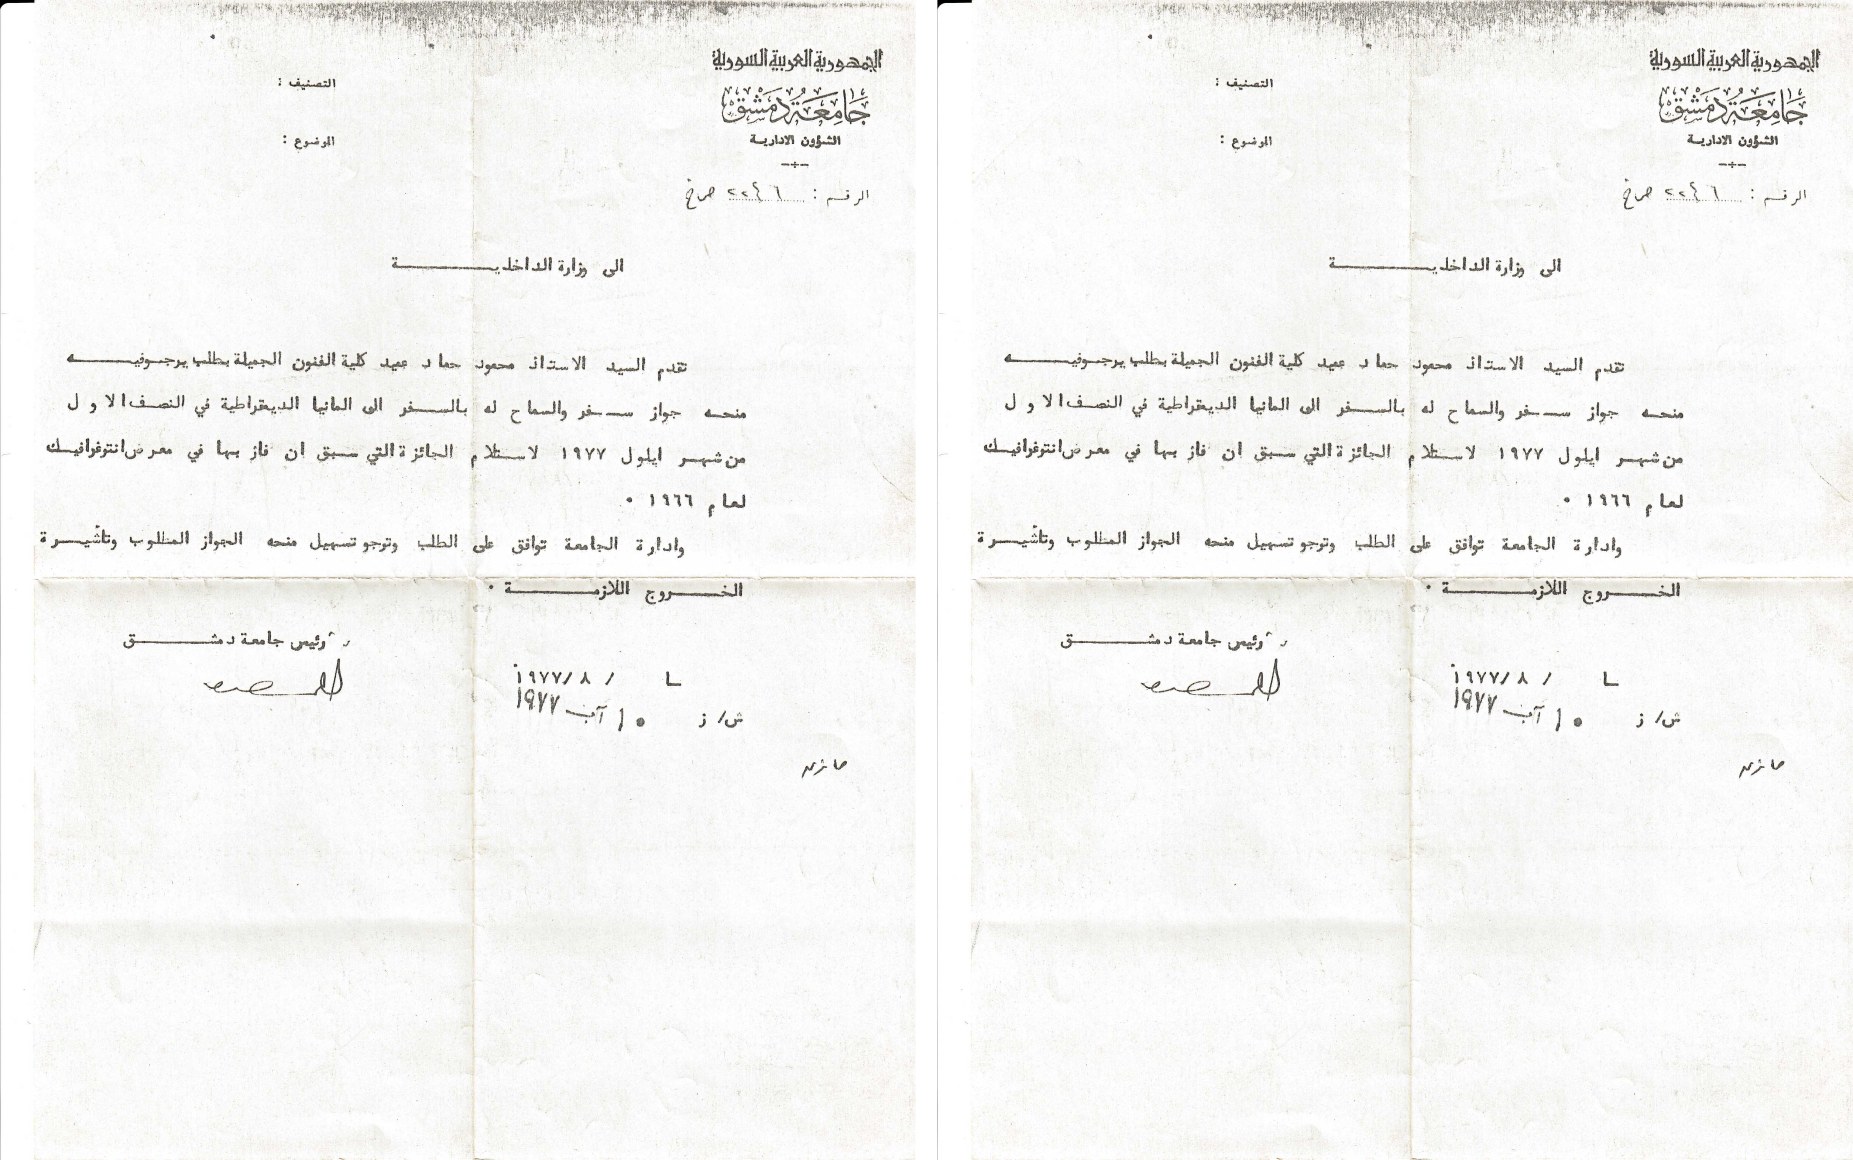 الجمهورية العربية السورية
جامعة دمشق
الشؤون الادارية
الرقم : ٢٢٤٦
التصنيف :
الموضوع :
الى وزارة الداخليــــــة
تقدم السيد الاستاذ محمود حماد عميد كلية الفنون الجميلة بطلب يرجـوفيـــــه
منحـه جواز ســفر والسماح له بالســفر الى المانيا الديمقراطية في النصف الاول
من شهـر ايلول ١٩٧٧ لاستلام الجائزة التي سبق ان فاز بها في معرض انترغرافيـك
لعام ١٩٦٦ ٠
وادارة الجامعة توافق على الطلب وترجو تسهيل منحه الجواز المطلوب وتأشيـرة
الخــروج اللازمـــــة ٠
رئيس جامعة دمشـــــق
١٩٧٧/٨/
١٠ آب ١٩٧٧
ش/ ز
الجمهورية العربية السورية
جامعة دمشق
الشؤون الادارية
الرقم : ٢٢٤٦
التصنيف :
الموضوع :
الى وزارة الداخليــــــة
تقدم السيد الاستاذ محمود حماد عميد كلية الفنون الجميلة بطلب يرجـوفيـــــه
منحـه جواز ســفر والسماح له بالســفر الى المانيا الديمقراطية في النصف الاول
من شهـر ايلول ١٩٧٧ لاستلام الجائزة التي سبق ان فاز بها في معرض انترغرافيـك
لعام ١٩٦٦ ٠
وادارة الجامعة توافق على الطلب وترجو تسهيل منحه الجواز المطلوب وتأشيـرة
الخــروج اللازمـــــة ٠
رئيس جامعة دمشـــــق
١٩٧٧/٨/
١٠ آب ١٩٧٧
ش/ ز